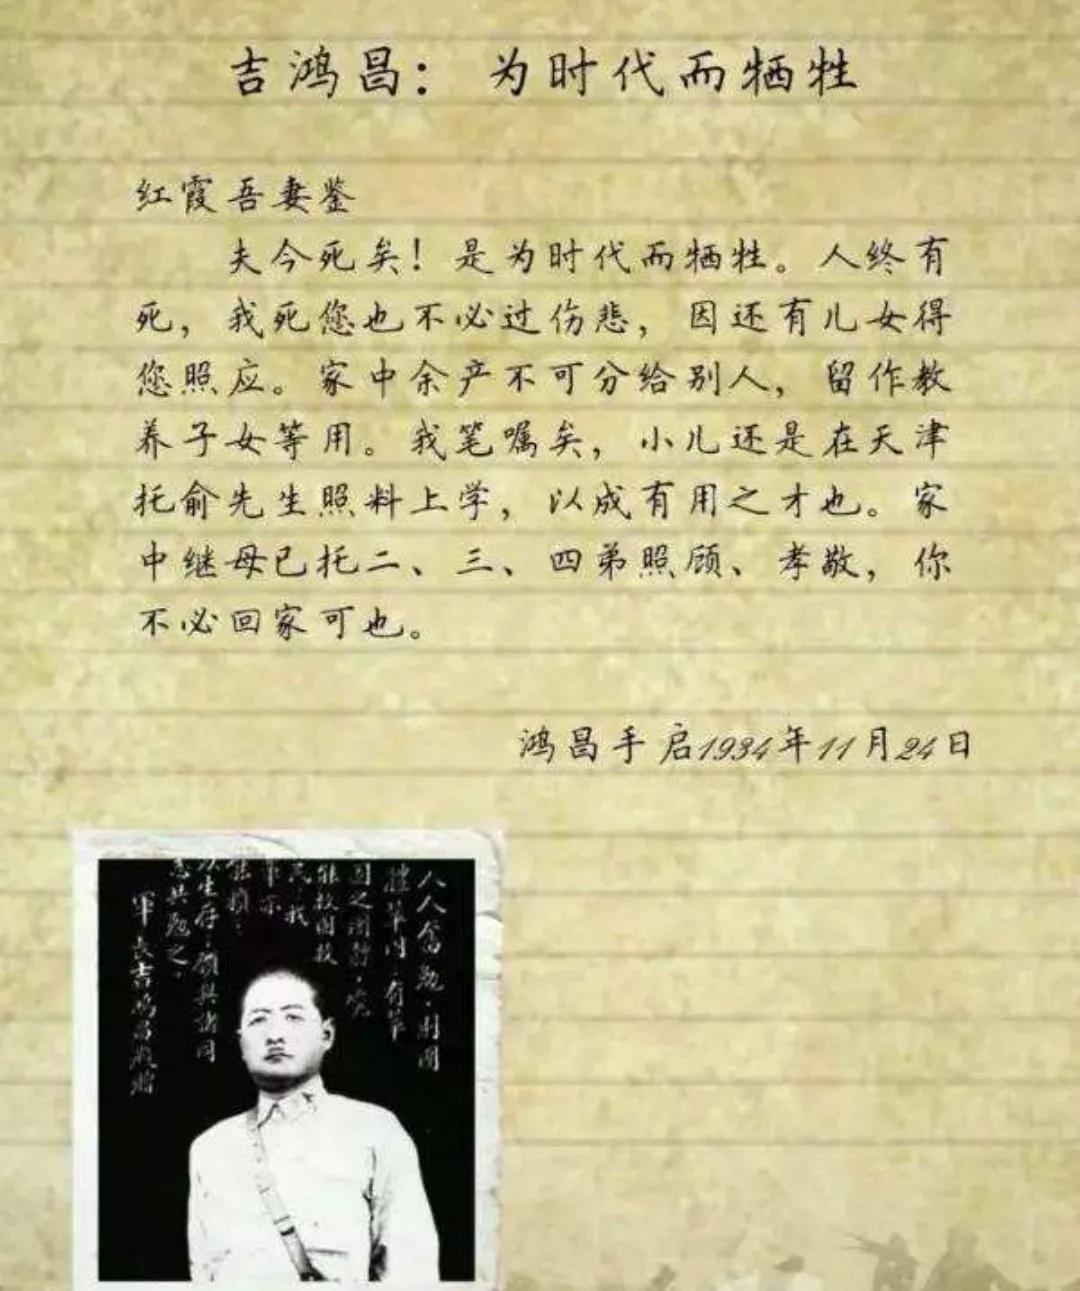 吉鸿昌：为时代而牺牲
红霞吾妻鉴
夫今死矣！是为时代而牺牲。人终有
死，我死您也不必过伤悲，因还有儿女得
您照应。家中余产不可分给别人，留作教
养子女等用。我笔嘱矣，小儿还是在天津
托俞先生照料上学，以成有用之才也。家
中继母已托二、三、四弟照顾、孝敬，你
不必回家可也。
鸿昌手启1934年11月24日
人人奋勉·则团
体
国之
能救国救
民·我
以生存·愿与诸同
志共勉之·
军长吉鸿昌